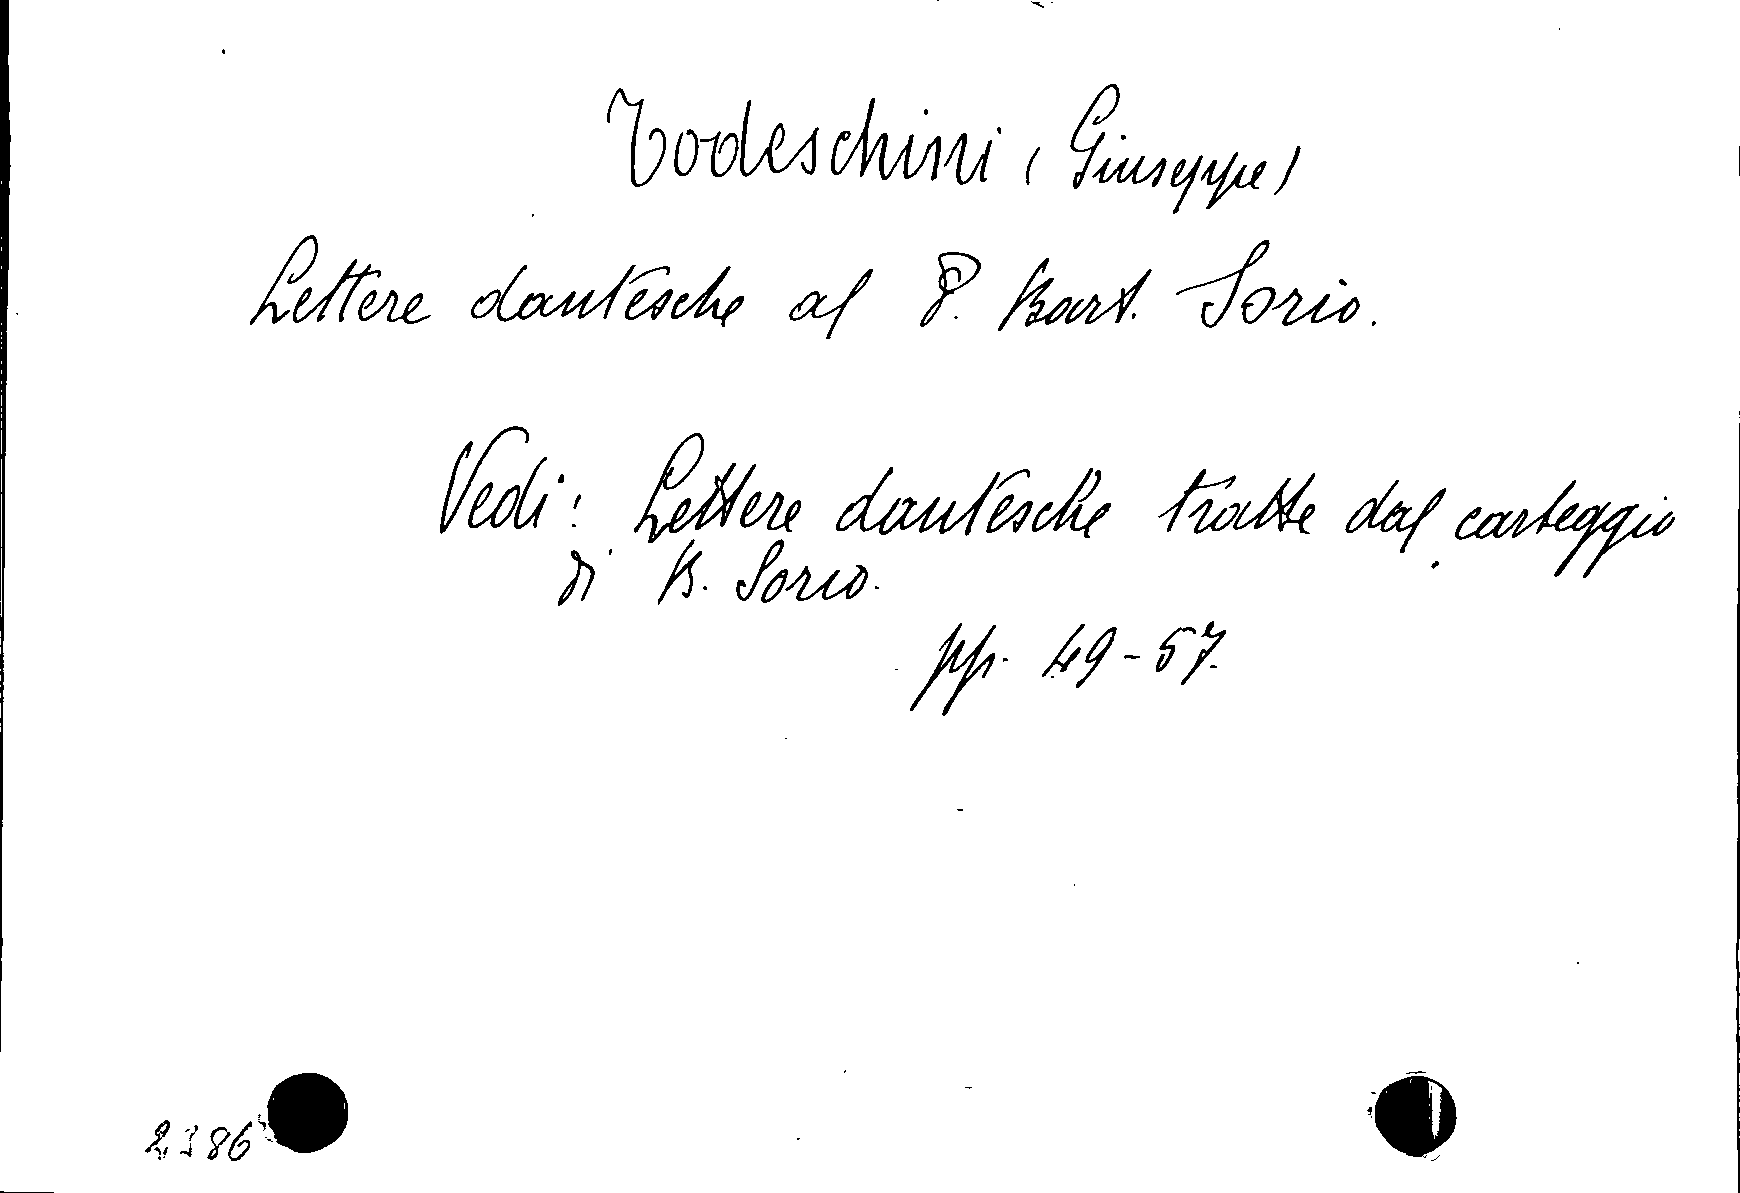 Todeschini (Giuseppe)
Lettere dantesche al P. Bart. Sorio.
Vedi: Lettere dantesche tratte dal carteggio
di B. Sorio.
pp. 49-57.
2386